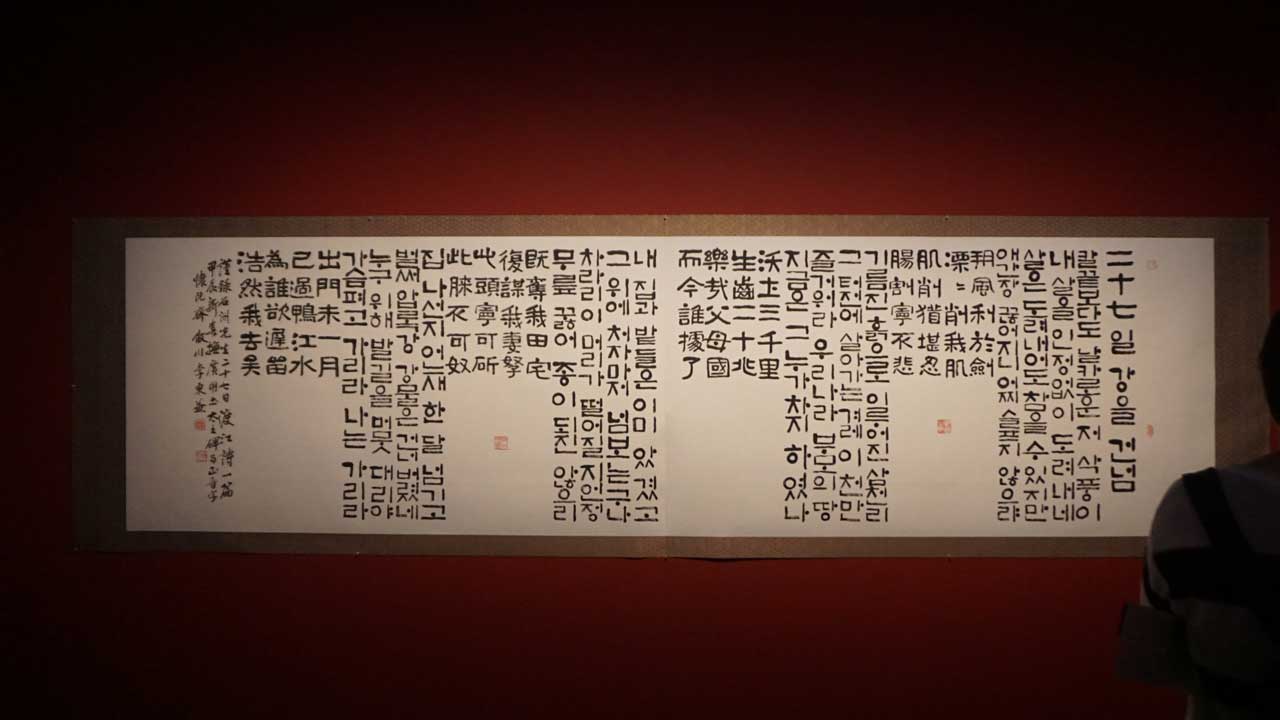 二十七日 강을 건넘
칼끝보다도 날카로운 저 삭풍이
내 살을 인정없이 도려내네
살은 도려내어도 참을 수 있지만
애간장 끊어지니 어찌 슬프지 않으랴
朔風利於劍
凓〻削我肌
肌削猶堪忍
腸割寧不悲
기름진 흙으로 이루어진 삼천리
그 터전에 살아가는 겨레 이천만
즐거워라 우리나라 부모의 땅
지금은 그 누가 차지 하였나
沃土三千里
生齒二十兆
樂哉父母國
而今誰據了
내 집과 밭들은 이미 앗겼고
그 위에 처자마저 넘보는구나
차라리 이 머리가 떨어질지언정
무릎 꿇어 종이 되진 않으리
旣奪我田宅
復謀我妻孥
此頭寧可斫
此膝不可奴
집 나선지 어느새 한 달 넘기고
벌써 압록강 강물은 건너 버렸네
누구 위해 발길을 머뭇 대리야
가슴 펴고 가리라 나는 가리라
出門未一月
已過鴨江水
為誰欲遲留
浩然我去矣
謹錄石洲先生二十七日渡江詩一篇
甲辰新春 廣開土大王碑与正音字
李東益